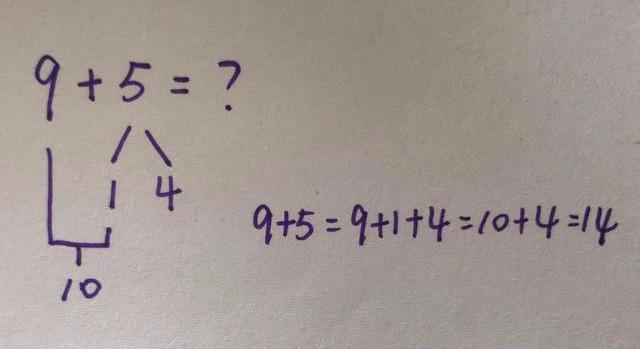 9+5=?
1 4
10
9+5=9+1+4=10+4=14